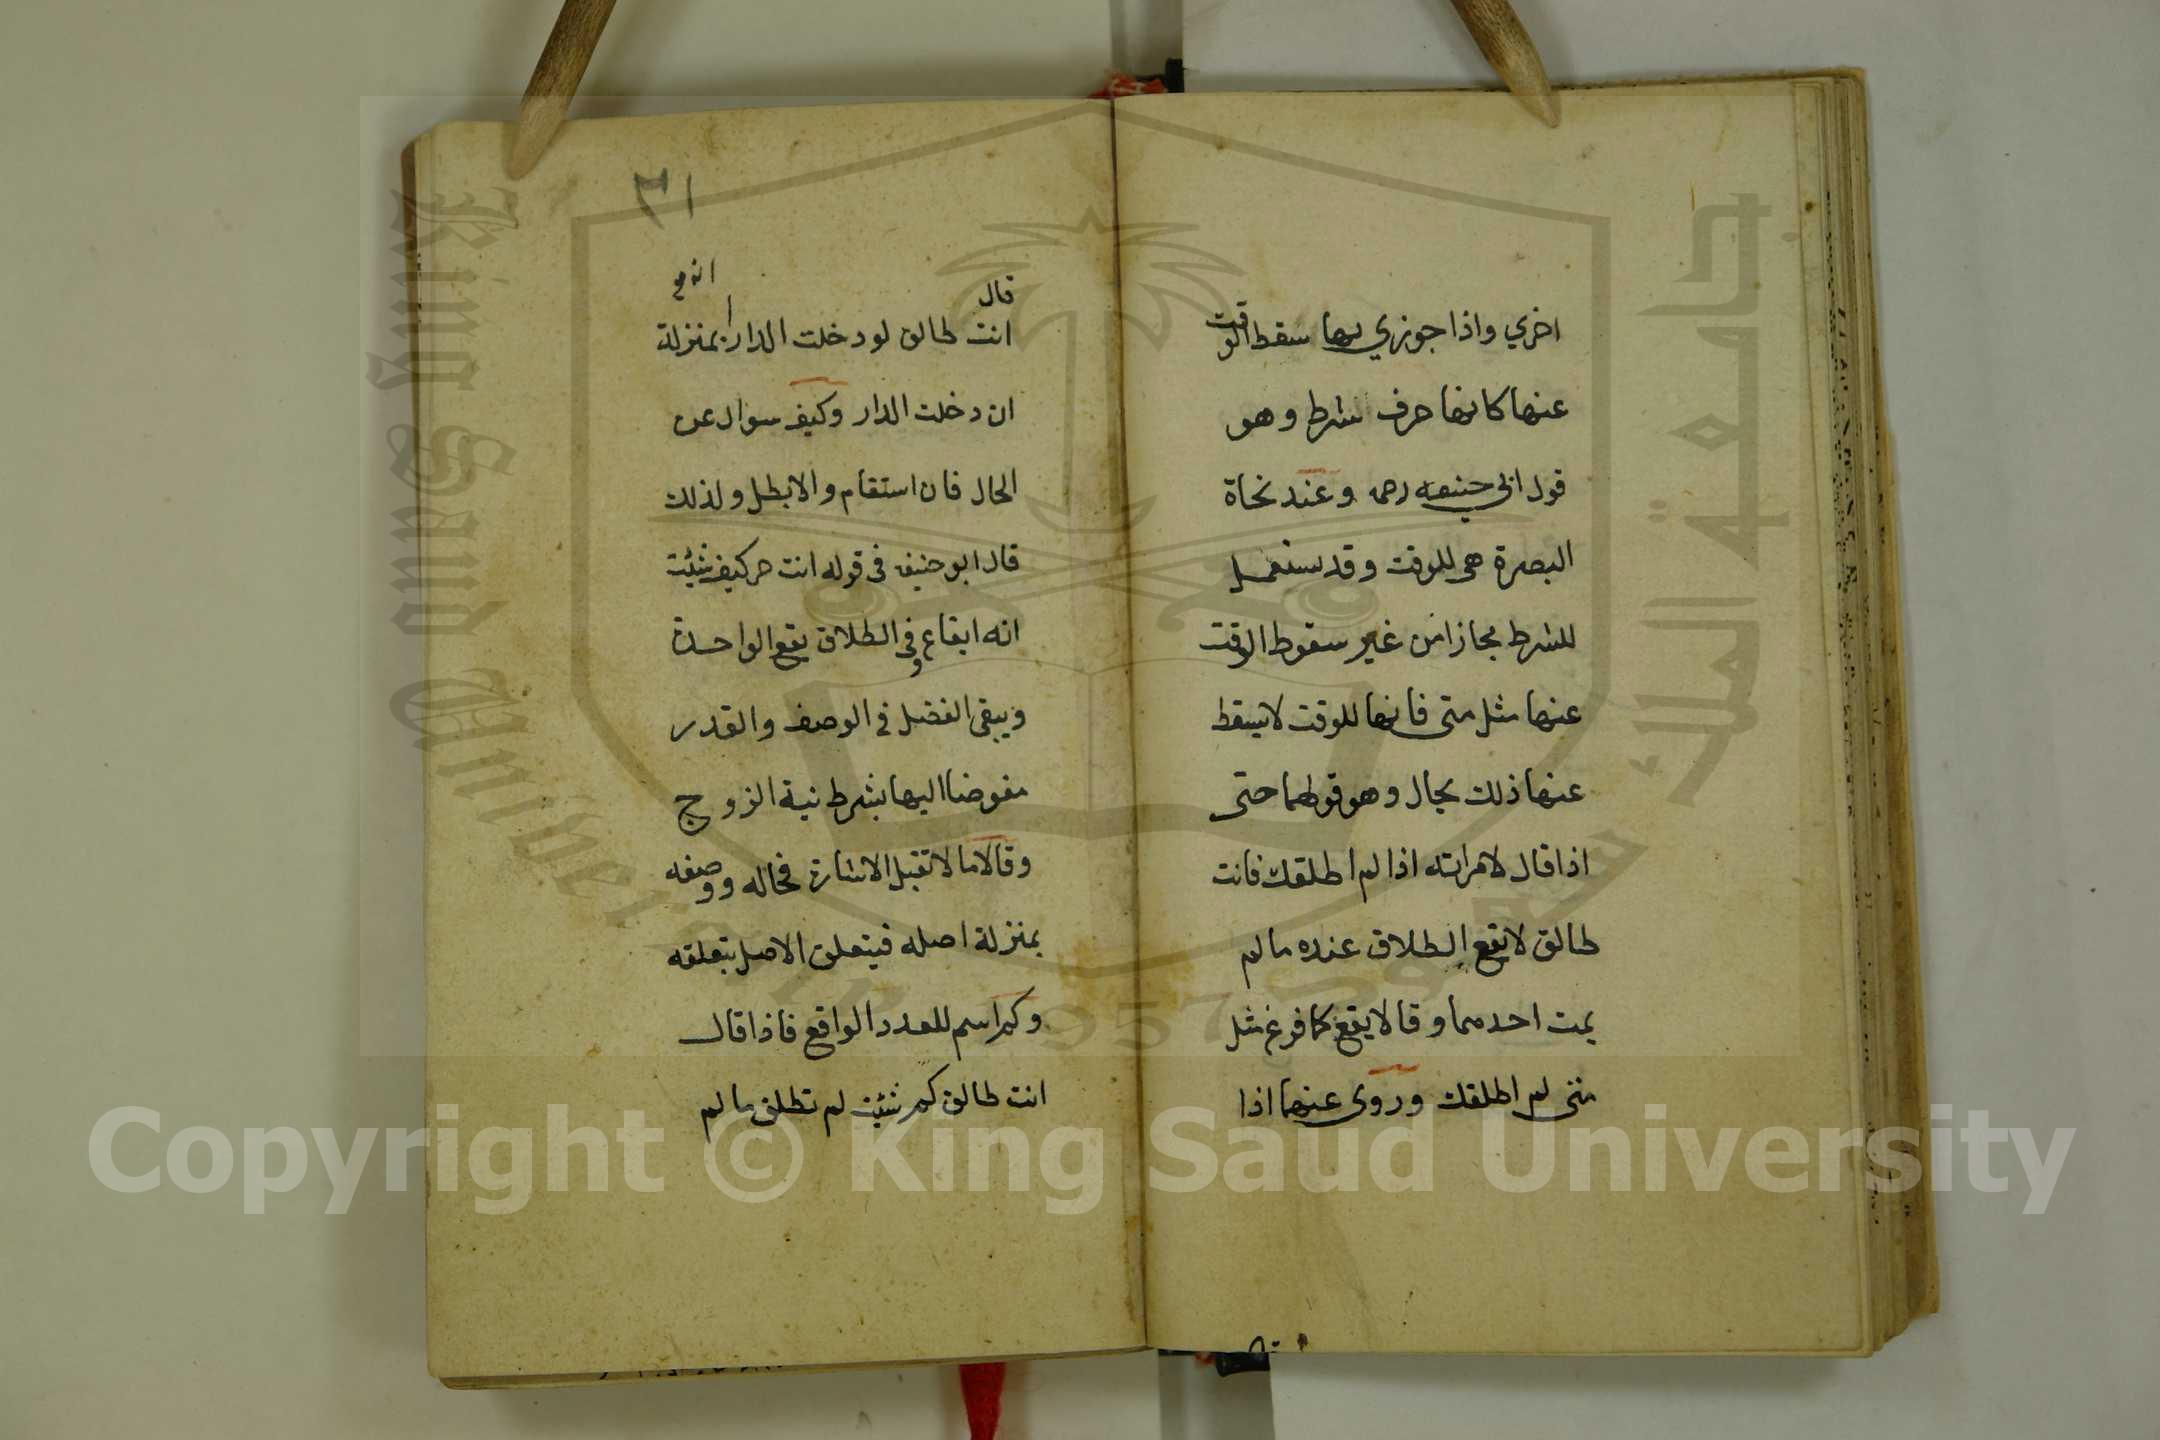 اخري واذا جوزي بها سقط الوقت
عنها كانها حرف شرط وهو
قول ابي حنيفه رحمه وعند نحاة
البصرة هي للوقت وقد يستعمل
للشرط مجازا من غير سقوط الوقت
عنها مثل متى فانها للوقت لا يسقط
عنها ذلك بحال وهو قولهما حتى
اذا قال لامراته اذا لم اطلقك فانت
طالق لا يقع الطلاق عنده ما لم
يمت احدهما وقالا يقع كما فرغ مثل
متى لم اطلقك وروى عنهما اذا
٣١
قال
انت طالق لو دخلت الدار بمنزلة
ان دخلت الدار وكيف سوال عن
الحال فان استقام والا بطل ولذلك
قال ابو حنيفه في قوله انت حر كيف شئت
انه ايقاع وفي الطلاق يقع الواحدة
ويبقى الفضل في الوصف والقدر
مفوضا اليها بشرط نية الزوج
وقالا ما لا تقبل الاشارة فحاله ووصفه
بمنزلة اصله فيتعلق الاصل بتعلقه
وكم اسم للعدد الواقع فاذا قال
انت طالق كم شئت لم تطلق ما لم
King Saud University
جامعة الملك سعود
1957
Copyright © King Saud University